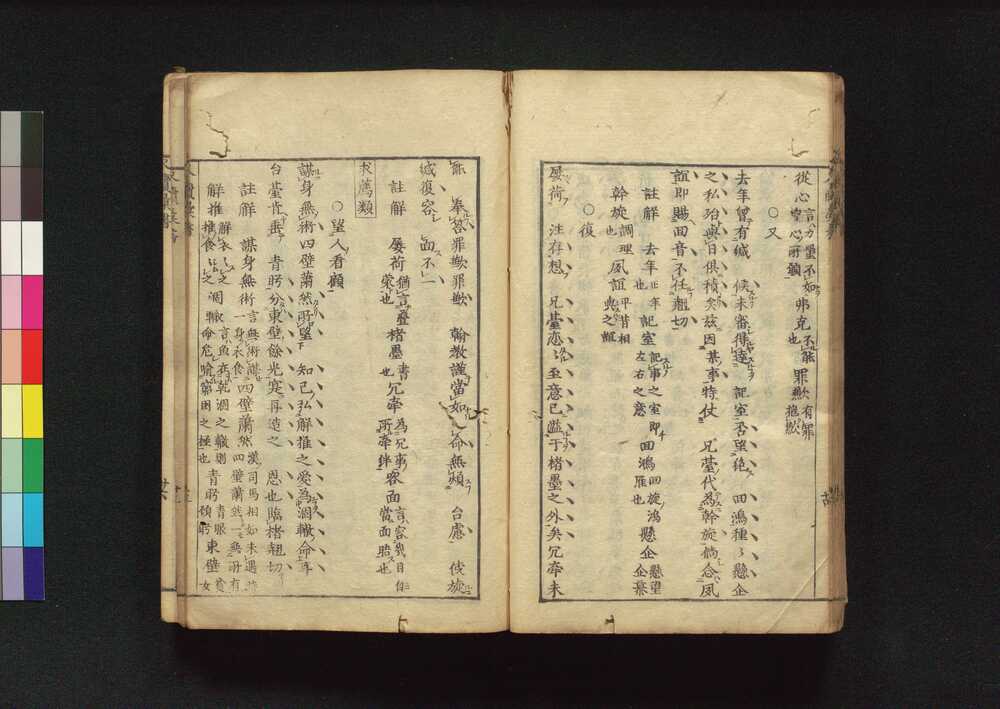 從心 言力量不如
望心所願 弗克 不能
也 罪歉 有罪
抱歉
○又
去年曾有緘 候未審得達 記室否望絶 回鴻種々懸企
之私殆與日俱積矣茲因 某事特仗 兄臺代為幹旋倘念夙
誼即賜回音不任翹切
註解 去年 正年
也 記室 記事之室即
左右之意 回鴻 回旋鴻
雁也 懸企 懸望
企慕
幹旋 調理 夙誼 平昔相
與之誼
○復
屡荷 注存想 兄臺恋汲至意已溢于楮墨之外矣冗牽未
奉答罪歉罪歉 翰教謹當如命無煩 台慮 伎旋
緘復容 面不一
註解 屡荷 猶言疊
蒙也 楮墨 書
也 冗牽 為冗事
所牽絆 容面 言容幾日
當面晤也
求薦類
○望人看顧
謀身無術四壁蕭然所望 知己弘解推之爱為涸轍命年
台臺肯垂 青眄分東壁餘光寔再造之 恩也臨楮翹切
註解 謀身無術 言無術謀
一身衣食 四壁蕭然 漢司馬相如未遇時
四壁蕭然一無所有
解推 解衣々之
推食々之 涸轍命 言魚在乾涸之轍則
命危喻窮困之極也 青眄 青眼
傾眄 東壁